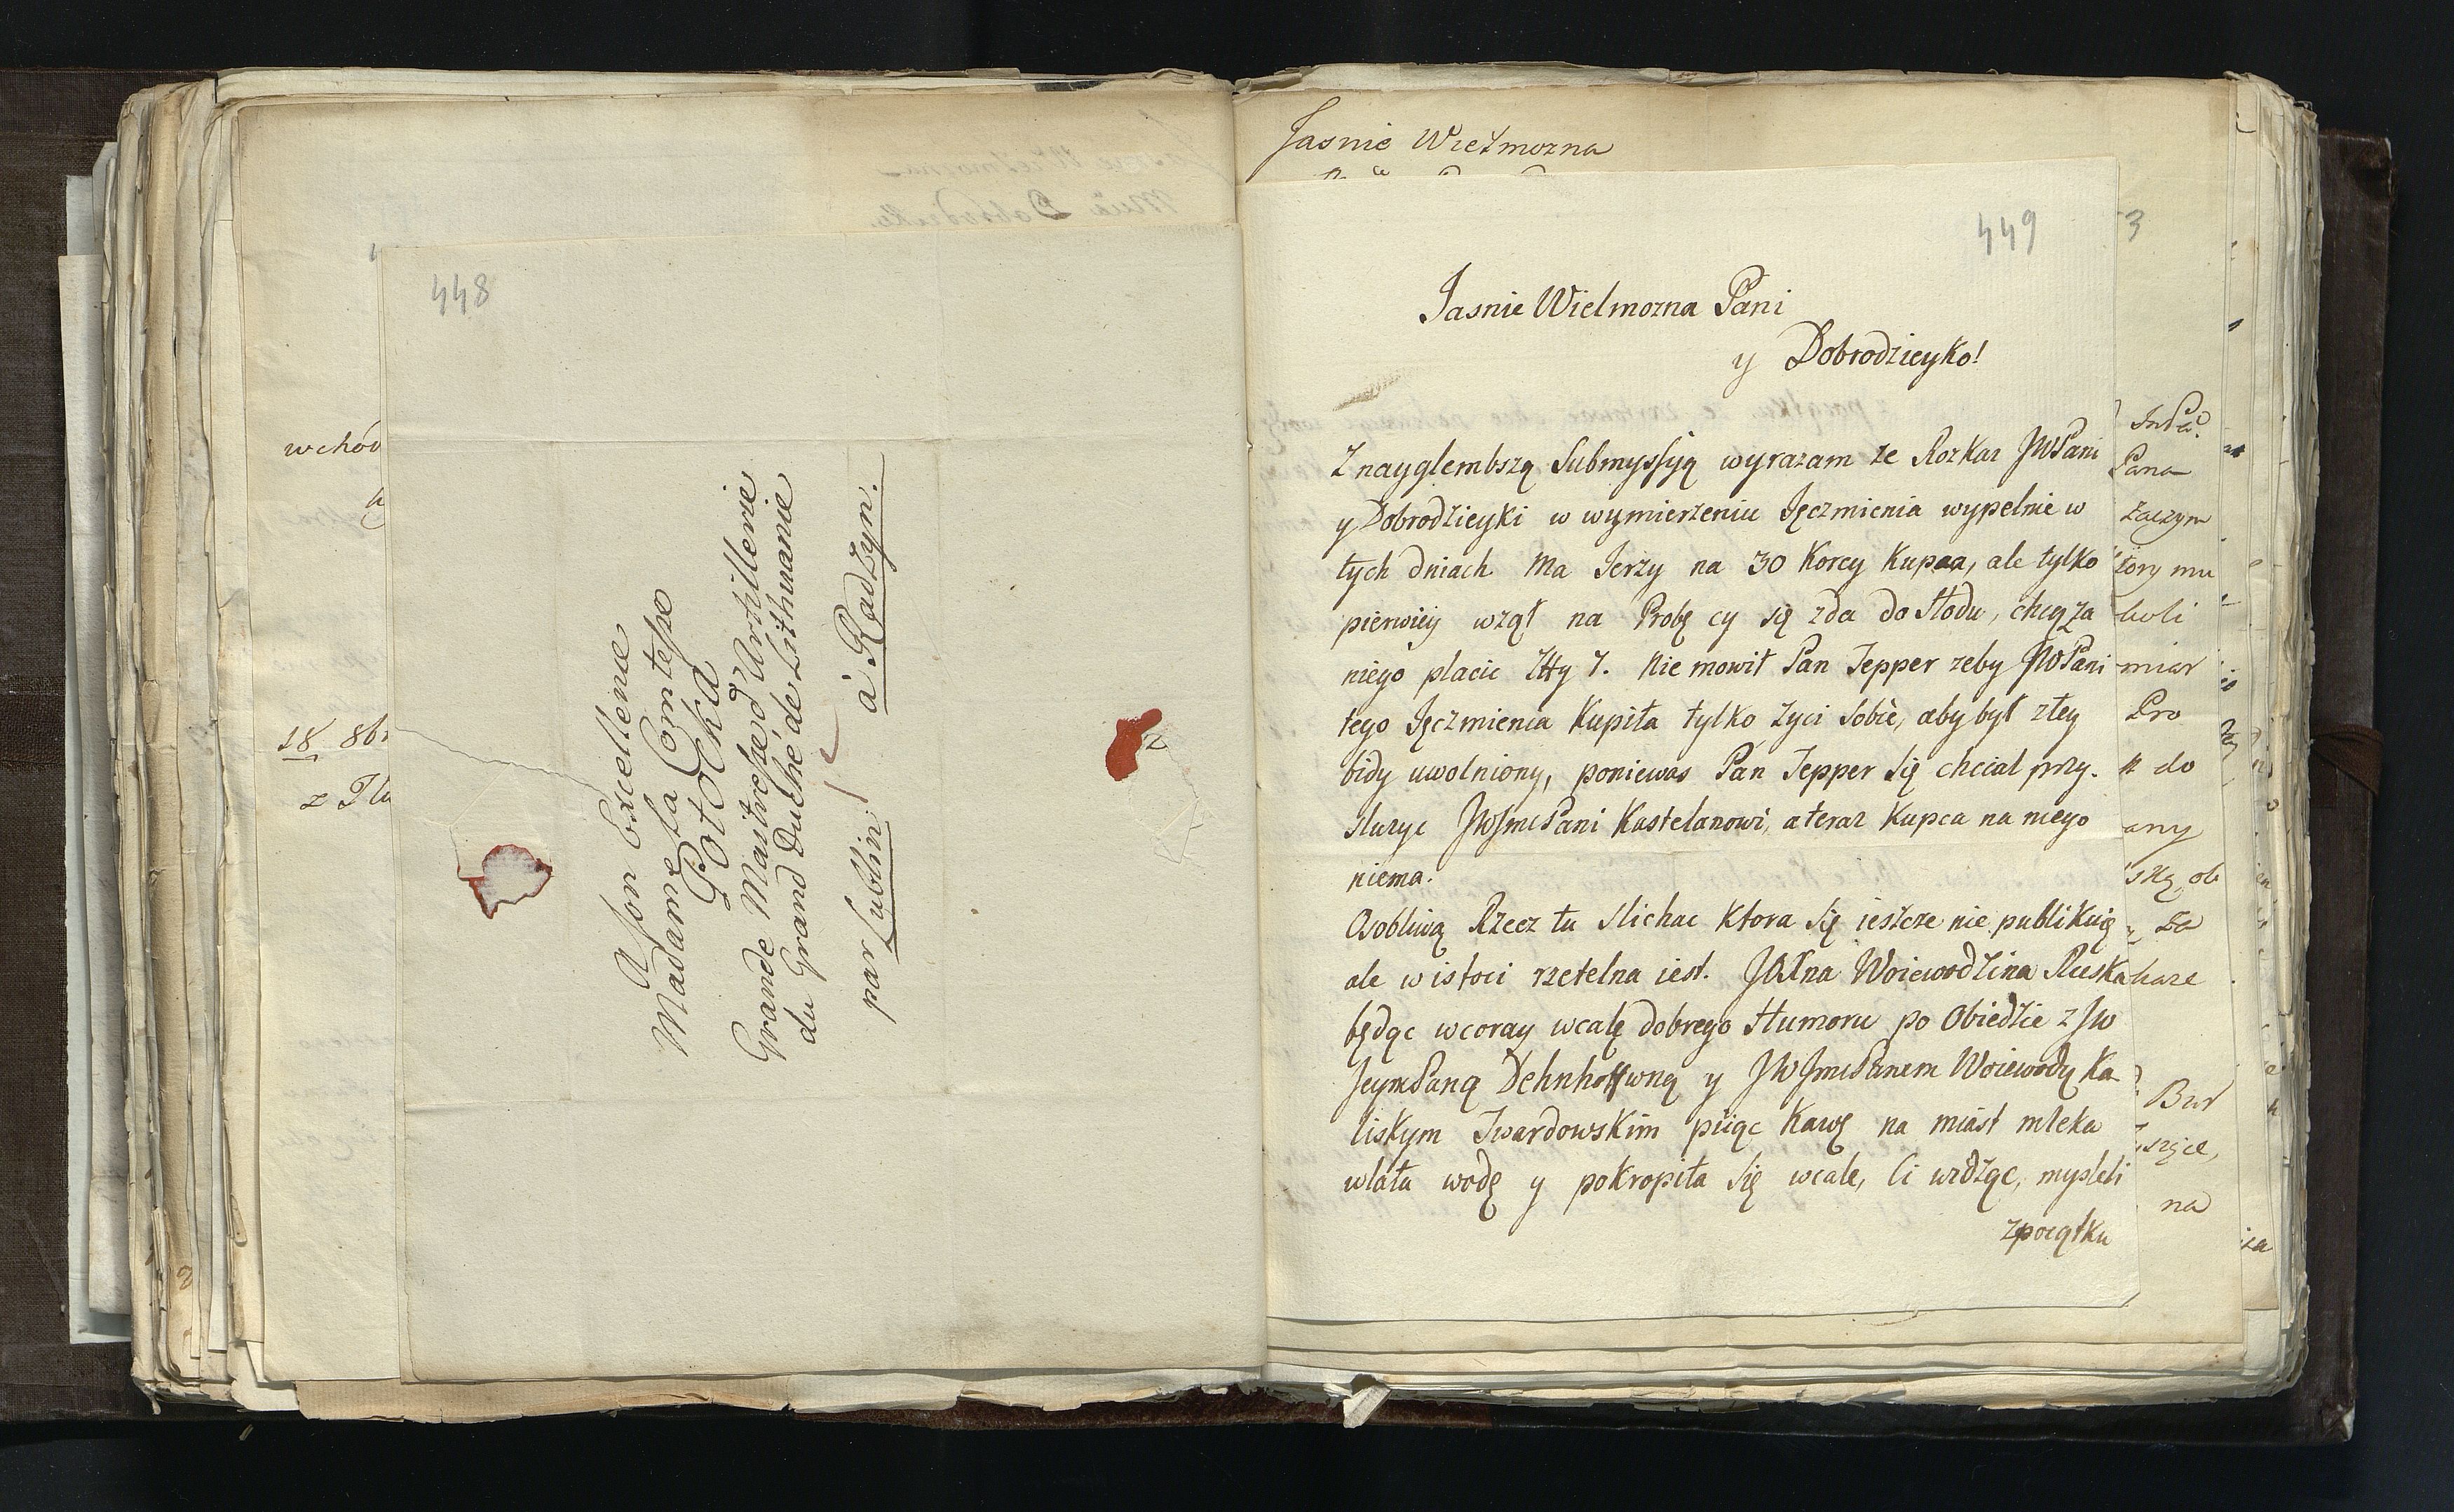 448
A Son Excellence
Madame La Comtesse
Potocka
Grande Maitresse d'Artillerie
du Grand Duché de Lithuanie
par Lublin /. à Radzyn.
wchod
18 8br
Jasnie Wielmozna
449
Jasnie Wielmozna Pani
y Dobrodzieyko!
Z nayglembszą Submyssyą wyrazam ze Rozkaz JWPani
y Dobrodzieyki w wymierzeniu Jęczmienia wypelnie w
tych dniach. Ma Jerzy na 30 Korcy Kupca, ale tylko
pierwiey wzął na Probę cy się zda do Słodu, chcą za
niego placic Złłty 7. Nie mowił Pan Tepper zeby JWPani
tego Jęczmienia Kupiła tylko Zyci Sobie, aby był z tey
bidy uwolniony, poniewas Pan Tepper się chciał przy.
sluzyc JWJmcPani Kastelanowi, a teraz Kupca na niego
niema.
Osobliwą Rzecz tu slichac Ktora się ieszcze nie publikuię
ale w istoci rzetelna iest. JWna Woiewodzina Ruska
będąc wcoray wcalę dobrego Humoru po Obiedzie z JW
JeymPaną Dehnhoffwną y JWJmcPanem Woiewodą Ka
liskym Twardowskim piiąc Kawę na miast mleka
wlała wodę y pokropiła się wcale, Ci widząc, mysleli
zpoiątku
3
Pana
Zaczym
tory mu
boli
miar
Pro
do
any
Za
na